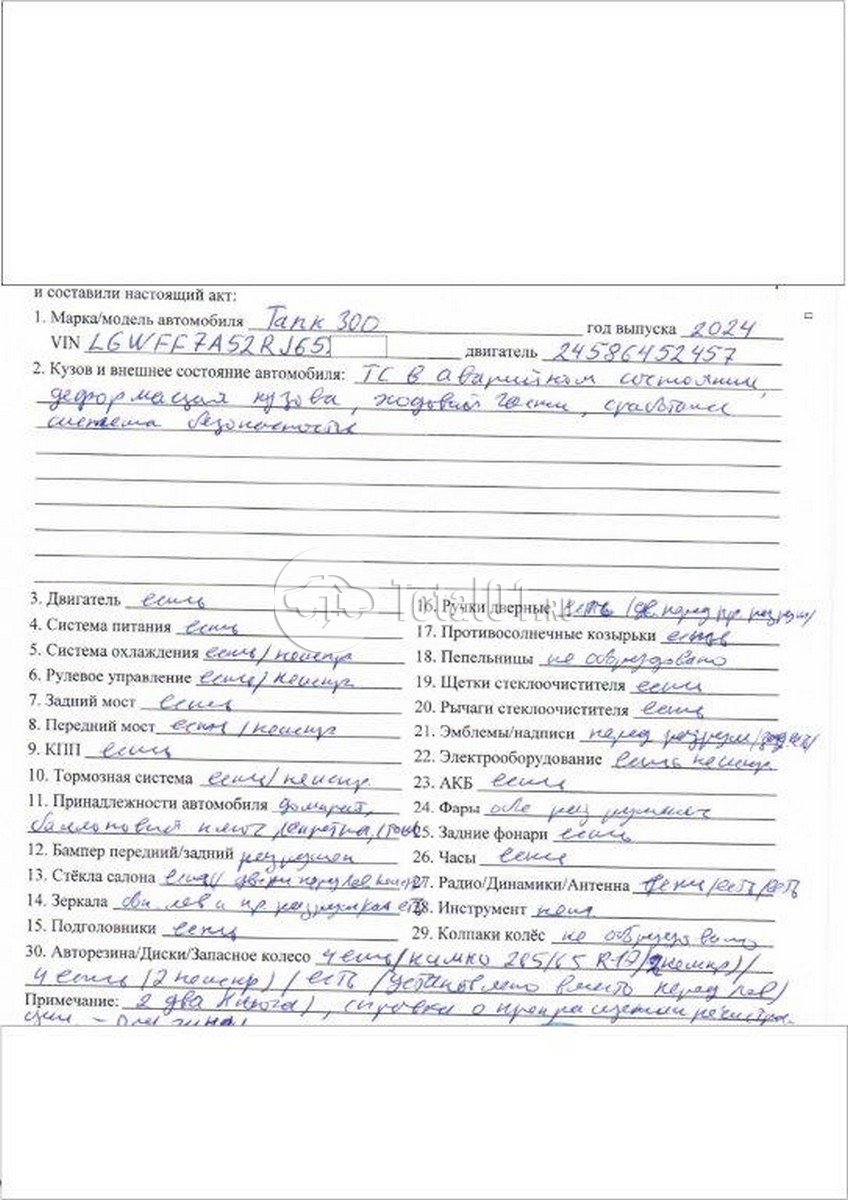 и составили настоящий акт:
1. Марка/модель автомобиля Танк 300 год выпуска 2024
VIN LGWFF7A52RJ65 двигатель 24586452457
2. Кузов и внешнее состояние автомобиля: ТС в аварийном состоянии,
деформация кузова, ходовой части, сработана
система безопасности
3. Двигатель есть
4. Система питания есть
5. Система охлаждения есть/неиспр
6. Рулевое управление есть/неиспр
7. Задний мост есть
8. Передний мост есть/неиспр
9. КПП есть
10. Тормозная система есть/неиспр.
11. Принадлежности автомобиля домкрат,
баллонный ключ
12. Бампер передний/задний разрушен
13. Стёкла салона есть/ двери перед лев
14. Зеркала лев и пр
15. Подголовники есть
Total01.RU
16. Ручки дверные есть перед пр
17. Противосолнечные козырьки есть
18. Пепельницы не оборудовано
19. Щетки стеклоочистителя есть
20. Рычаги стеклоочистителя есть
21. Эмблемы/надписи перед
22. Электрооборудование есть неиспр
23. АКБ есть
24. Фары обе
25. Задние фонари есть
26. Часы есть
27. Радио/Динамики/Антенна есть/есть/есть
28. Инструмент нет
29. Колпаки колёс не оборудовано
30. Авторезина/Диски/Запасное колесо 4 есть/кумхо 265/65 R-17/2 неиспр)/
4 есть (2 неиспр) / есть /установлено вместо перед лев)
Примечание: 2 два ключа), справка о прекращении регистра-
ции